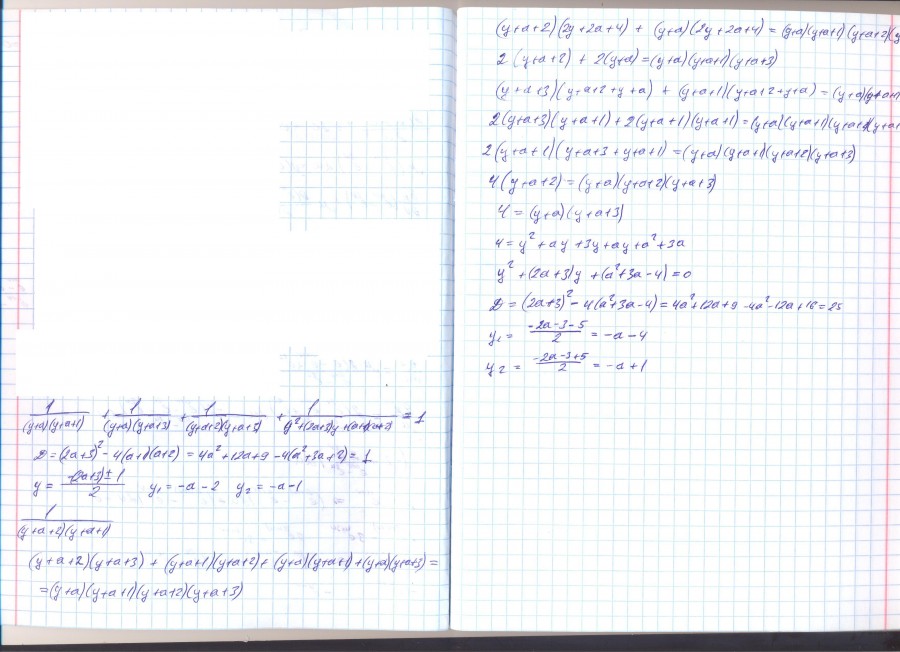 1/((y+a)(y+a+1)) + 1/((y+a)(y+a+3)) + 1/((y+a+2)(y+a+3)) + 1/(y²+(2a+3)y+(a+1)(a+2)) = 1
D = (2a+3)² - 4(a+1)(a+2) = 4a²+12a+9 - 4(a²+3a+2) = 1
y = (-(2a+3) ± 1)/2 y₁ = -a-2 y₂ = -a-1
1/((y+a+2)(y+a+1))
(y+a+2)(y+a+3) + (y+a+1)(y+a+2) + (y+a)(y+a+1) + (y+a)(y+a+3) =
= (y+a)(y+a+1)(y+a+2)(y+a+3)
(y+a+2)(2y+2a+4) + (y+a)(2y+2a+4) = (y+a)(y+a+1)(y+a+2)(y
2(y+a+2) + 2(y+a) = (y+a)(y+a+1)(y+a+3)
(y+a+3)(y+a+2+y+a) + (y+a+1)(y+a+2+y+a) = (y+a)(y+a+1
2(y+a+3)(y+a+1) + 2(y+a+1)(y+a+1) = (y+a)(y+a+1)(y+a+2)(y+a+
2(y+a+1)(y+a+3+y+a+1) = (y+a)(y+a+1)(y+a+2)(y+a+3)
4(y+a+2) = (y+a)(y+a+2)(y+a+3)
4 = (y+a)(y+a+3)
4 = y²+ay+3y+ay+a²+3a
y²+(2a+3)y+(a²+3a-4) = 0
D = (2a+3)² - 4(a²+3a-4) = 4a²+12a+9 -4a²-12a+16 = 25
y₁ = (-2a-3-5)/2 = -a-4
y₂ = (-2a-3+5)/2 = -a+1